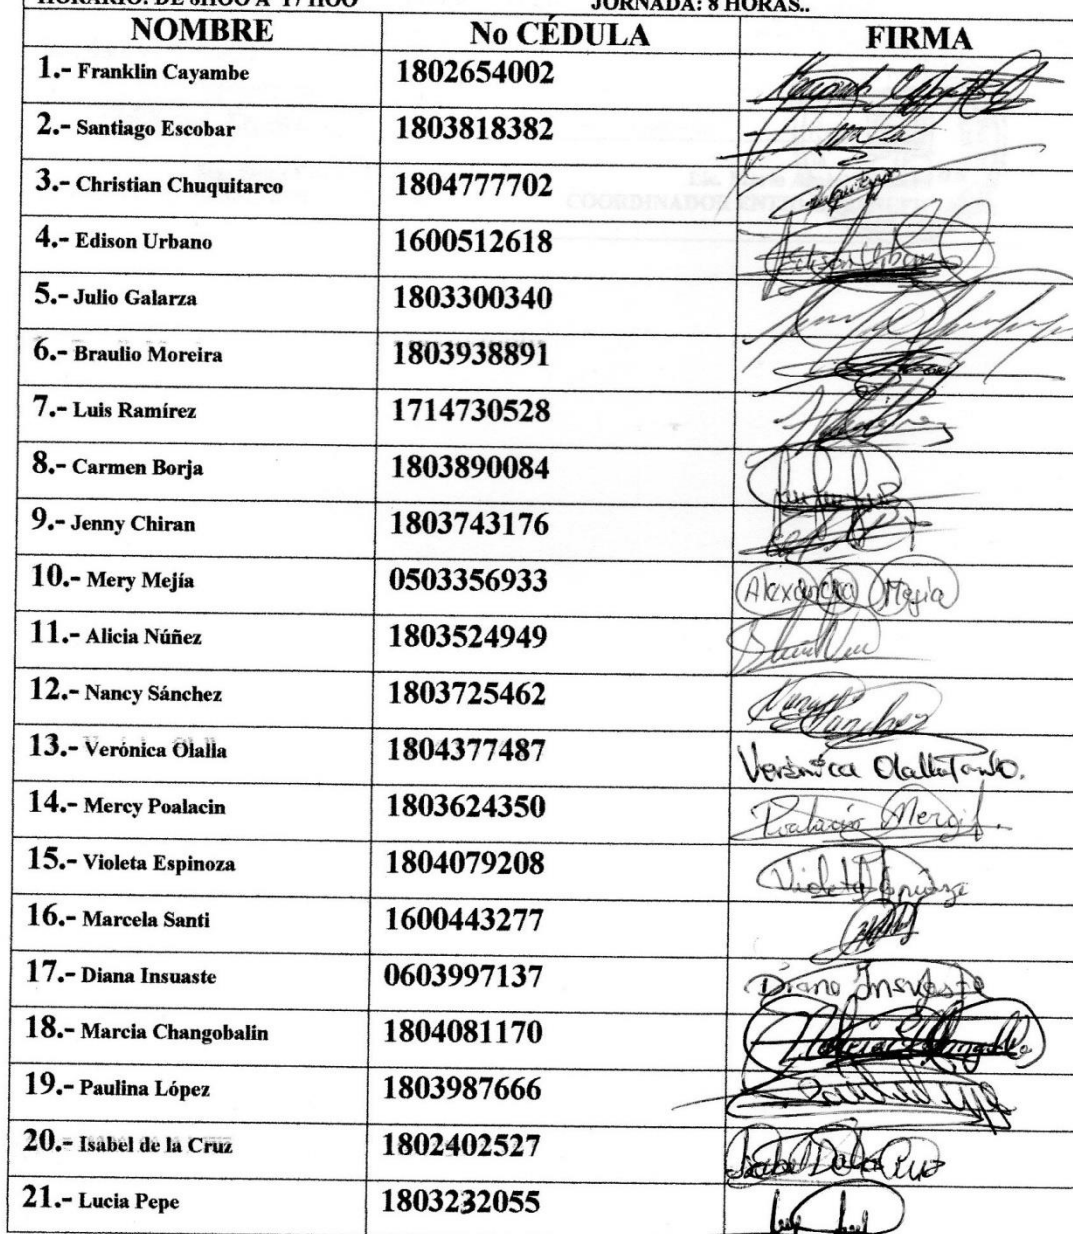 HORARIO: DE 8HOO A 17 HOO JORNADA: 8 HORAS..
NOMBRE No CÉDULA FIRMA
1.- Franklin Cayambe 1802654002
2.- Santiago Escobar 1803818382
3.- Christian Chuquitarco 1804777702
4.- Edison Urbano 1600512618 Edison Urbano
5.- Julio Galarza 1803300340
6.- Braulio Moreira 1803938891
7.- Luis Ramírez 1714730528
8.- Carmen Borja 1803890084
9.- Jenny Chiran 1803743176
10.- Mery Mejía 0503356933 Alexandra Mejia
11.- Alicia Núñez 1803524949
12.- Nancy Sánchez 1803725462 Nancy Sanchez
13.- Verónica Olalla 1804377487 Verónica Olalla
14.- Mercy Poalacin 1803624350 Poalacin Mercy
15.- Violeta Espinoza 1804079208 Violeta Espinoza
16.- Marcela Santi 1600443277
17.- Diana Insuaste 0603997137 Diana Insuaste
18.- Marcia Changobalin 1804081170
19.- Paulina López 1803987666
20.- Isabel de la Cruz 1802402527 Isabel De la Cruz
21.- Lucia Pepe 1803232055